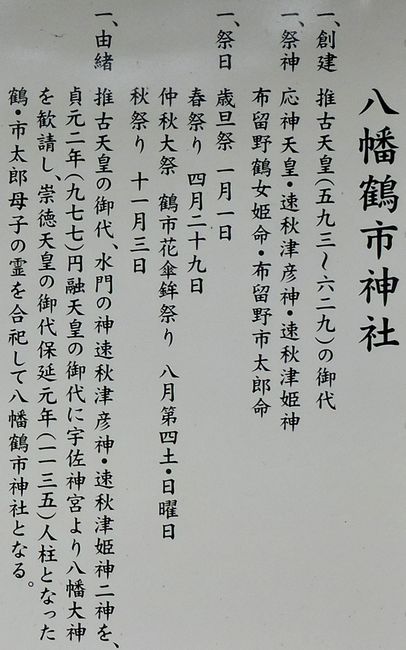 八幡鶴市神社
一、創建　推古天皇(五九三〜六二九)の御代
一、祭神　応神天皇・速秋津彦神・速秋津姫神
布留野鶴女姫命・布留野市太郎命
一、祭日　歳旦祭　一月一日
春祭り　四月二十九日
仲秋大祭　鶴市花傘鉾祭り　八月第四土・日曜日
秋祭り　十一月三日
一、由緒　推古天皇の御代、水門の神速秋津彦神・速秋津姫神二神を、
貞元二年(九七七)円融天皇の御代に宇佐神宮より八幡大神
を歓請し、崇徳天皇の御代保延元年(一一三五)人柱となった
鶴・市太郎母子の霊を合祀して八幡鶴市神社となる。